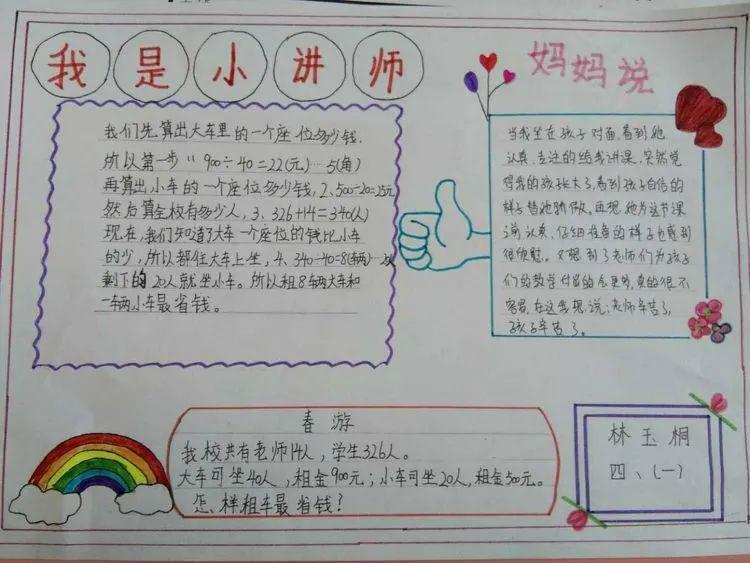 我是小讲师
我们先算出大车里的一个座位多少钱.
所以第一步 1、900÷40=22(元)…5(角)
再算出小车的一个座位多少钱,2、500÷20=25元
然后算全校有多少人,3、326+14=340(人)
现在,我们知道了大车一个座位的钱比小车
的少,所以都住大车上坐,4、340÷40=8(辆)…20
剩下的20人就坐小车。所以租8辆大车和
一辆小车最省钱。
妈妈说
当我坐在孩子对面,看到他
认真、专注的给我讲课,突然觉
得我的孩子长大了,看到孩子自信的
样子替他骄傲。再想他为这节课
课前认真、仔细准备的样子也感到
很欣慰。又想到了老师们为孩子
们的教学付出的会更多,真的很不
容易,在这里想说:老师辛苦了,
孩子辛苦了。
春游
我校共有老师14人,学生326人。
大车可坐40人,租金900元;小车可坐20人,租金500元。
怎样租车最省钱?
林玉桐
四、(一)